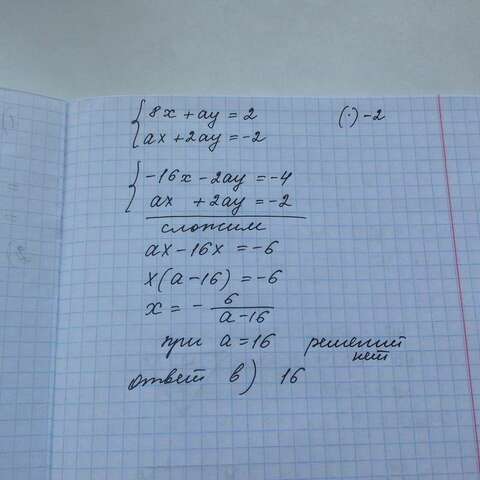 8x + ay = 2 (·) -2
ax + 2ay = -2
-16x - 2ay = -4
ax + 2ay = -2
сложим
ax - 16x = -6
x(a - 16) = -6
x = - 6/(a - 16)
при a = 16 решений нет
ответ в) 16